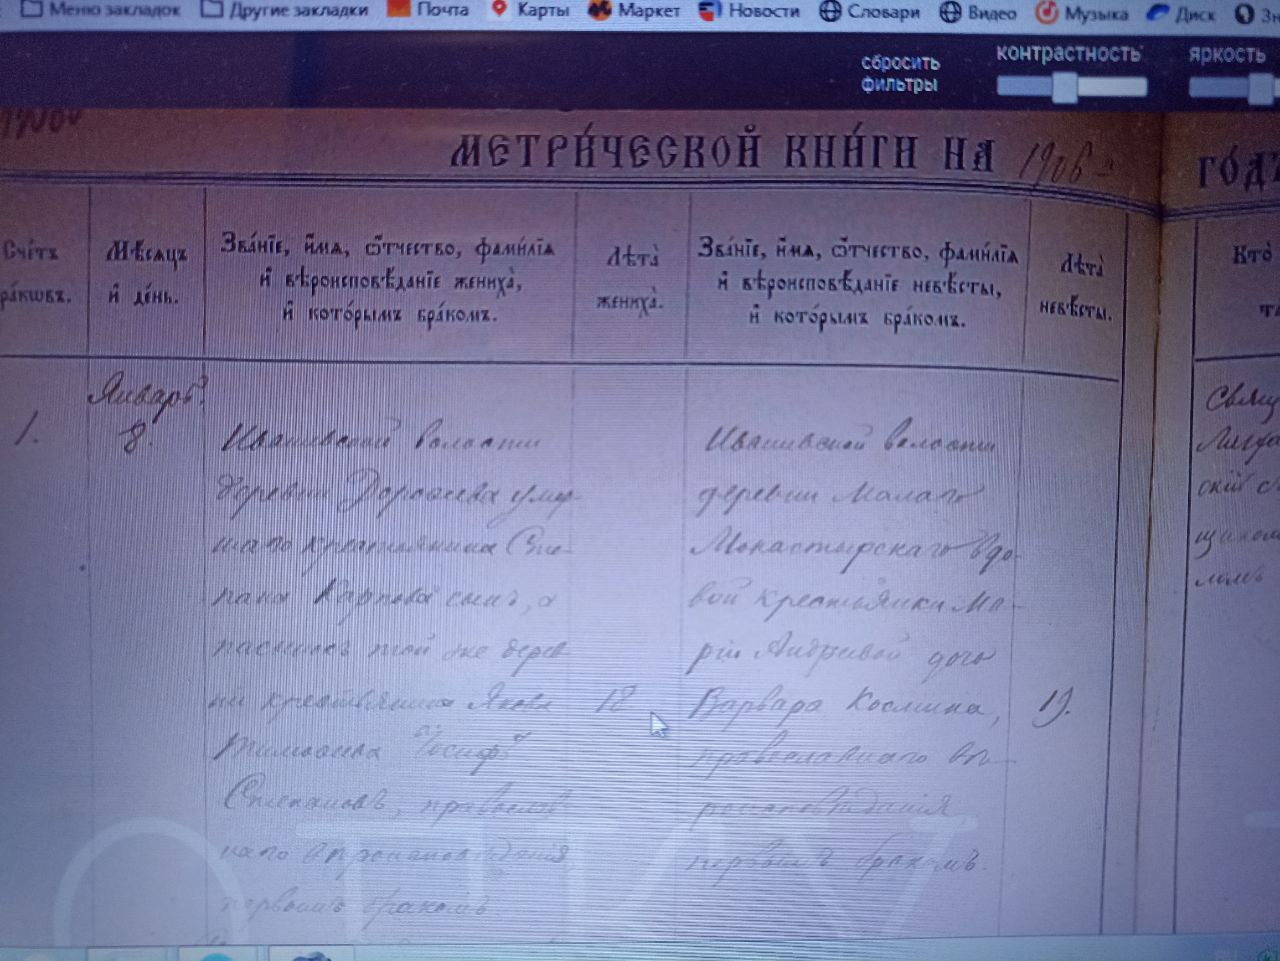 Меню закладок Другие закладки Почта Карты Маркет Новости Словари Видео Музыка Диск
сбросить фильтры контрастность яркость
МЕТРИ́ЧЕСКОЙ КНИ́ГИ НА 1906 ГО́ДЪ
Сче́тъ бра́ковъ.
Мѣ́сяцъ и҆ де́нь.
Зва́нїе, и҆́мѧ, ѻ҆́тчество, фами́лїѧ
и҆ вѣроисповѣ́данїе жениха̀,
и҆ кото́рымъ бра́комъ.
Лѣта̀
жениха̀.
Зва́нїе, и҆́мѧ, ѻ҆́тчество, фами́лїѧ
и҆ вѣроисповѣ́данїе невѣ́сты,
и҆ кото́рымъ бра́комъ.
Лѣта̀
невѣ́сты.
Кто̀
1.
Январь
8.
волости
деревни умер-
шаго крестьянина Сте-
пана Карпова сынъ, а
той же дерев
ни крестьянина Якова
Тимофеева Іосифъ
Степановъ, православ
наго вѣроисповѣданія
первымъ бракомъ
18
волости
деревни Малаго
Монастырскаго вдо-
вой крестьянки Ма-
ріи Андреевой дочь
Варвара Космина,
православнаго вѣ-
роисповѣданія,
первымъ бракомъ.
19.